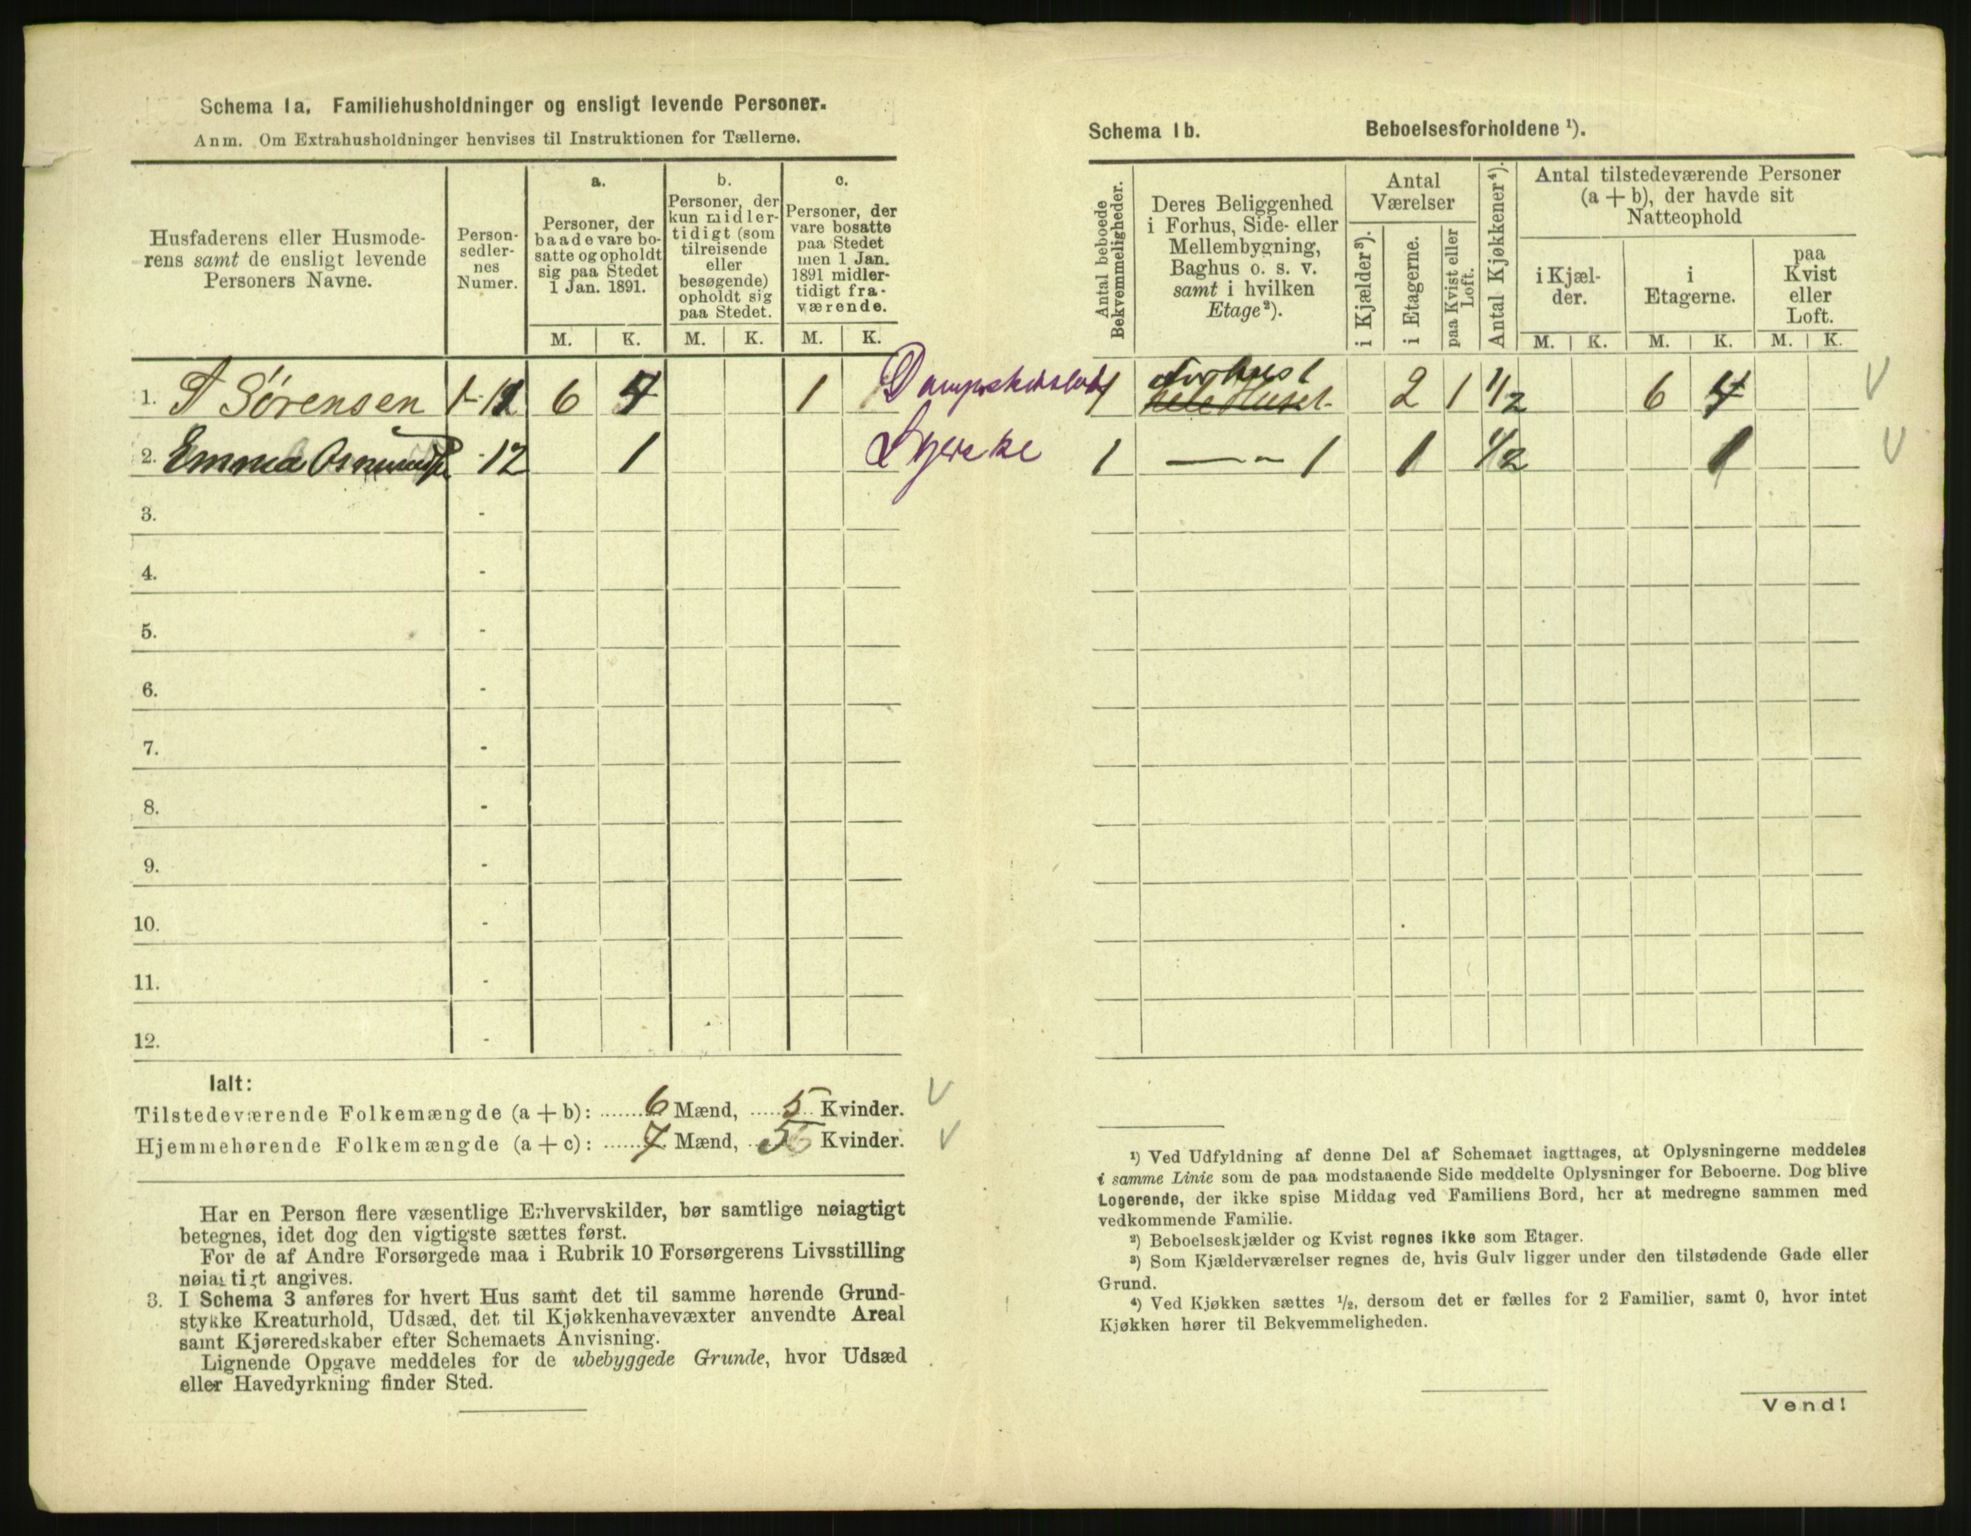 Schema 1a. Familiehusholdninger og ensligt levende Personer.
Anm. Om Extrahusholdninger henvises til Instruktionen for Tællerne.
Husfaderens eller Husmode-
rens samt de ensligt levende
Personers Navne.
Person-
sedler-
nes
Numer.
a.
Personer, der
baade vare bo-
satte og opholdt
sig paa Stedet
1 Jan. 1891.
b.
Personer, der
kun midler-
tidigt (som
tilreisende
eller
besøgende)
opholdt sig
paa Stedet.
c.
Personer, der
vare bosatte
paa Stedet
men 1 Jan.
1891 midler-
tidigt fra-
værende.
M. K. M. K. M. K.
1. Sørensen 1-11 6 4 1
2. Emma -12 1
3. -
4. -
5. -
6. -
7. -
8. -
9. -
10. -
11. -
12. -
Ialt:
Tilstedeværende Folkemængde (a + b): 6 Mænd, 5 Kvinder.
Hjemmehørende Folkemængde (a + c): 7 Mænd, 5 Kvinder.
Har en Person flere væsentlige Erhvervskilder, bør samtlige nøiagtigt
betegnes, idet dog den vigtigste sættes først.
For de af Andre Forsørgede maa i Rubrik 10 Forsørgerens Livsstilling
nøiagtigt angives.
3. I Schema 3 anføres for hvert Hus samt det til samme hørende Grund-
stykke Kreaturhold, Udsæd, det til Kjøkkenhavevæxter anvendte Areal
samt Kjøreredskaber efter Schemaets Anvisning.
Lignende Opgave meddeles for de ubebyggede Grunde, hvor Udsæd
eller Havedyrkning finder Sted.
Schema 1b. Beboelsesforholdene ¹).
Antal beboede
Bekvemmeligheder.
Deres Beliggenhed
i Forhus, Side- eller
Mellembygning,
Baghus o. s. v.
samt i hvilken
Etage²).
Antal
Værelser
i Kjælder³).
i Etagerne.
paa Kvist eller
Loft.
Antal Kjøkkener⁴).
Antal tilstedeværende Personer
(a + b), der havde sit
Natteophold
i Kjæl-
der.
i
Etagerne.
paa
Kvist
eller
Loft.
M. K. M. K. M. K.
1 Forhus 1 2 1 1/2 6 4
1 — " — 1 1 1/2 1
¹) Ved Udfyldning af denne Del af Schemaet iagttages, at Oplysningerne meddeles
i samme Linie som de paa modstaaende Side meddelte Oplysninger for Beboerne. Dog blive
Logerende, der ikke spise Middag ved Familiens Bord, her at medregne sammen med
vedkommende Familie.
²) Beboelseskjælder og Kvist regnes ikke som Etager.
³) Som Kjælderværelser regnes de, hvis Gulv ligger under den tilstødende Gade eller
Grund.
⁴) Ved Kjøkken sættes ½, dersom det er fælles for 2 Familier, samt 0, hvor intet
Kjøkken hører til Bekvemmeligheden.
Vend!